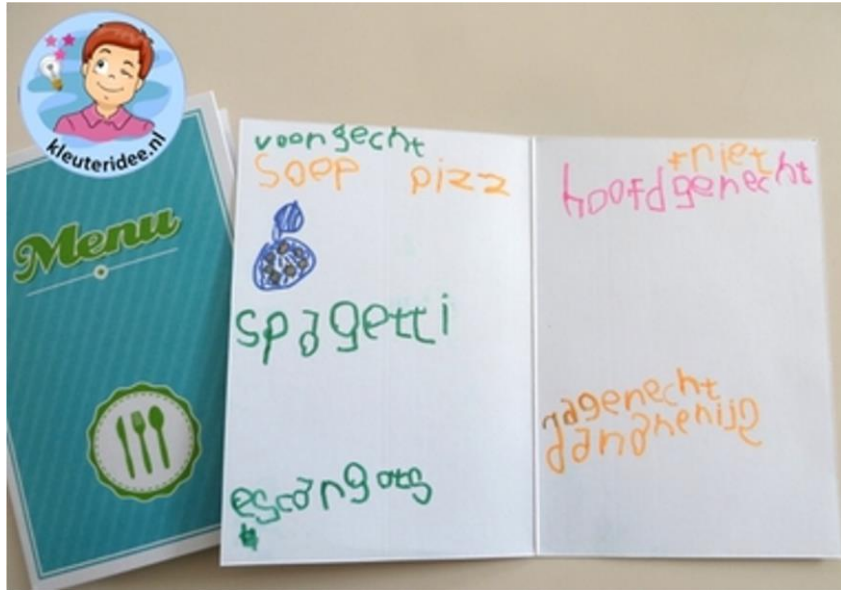 kleuteridee.nl
Menu
voorgecht
soep pizz
spagetti
escargots
friet
hoofdgenecht
nagenecht